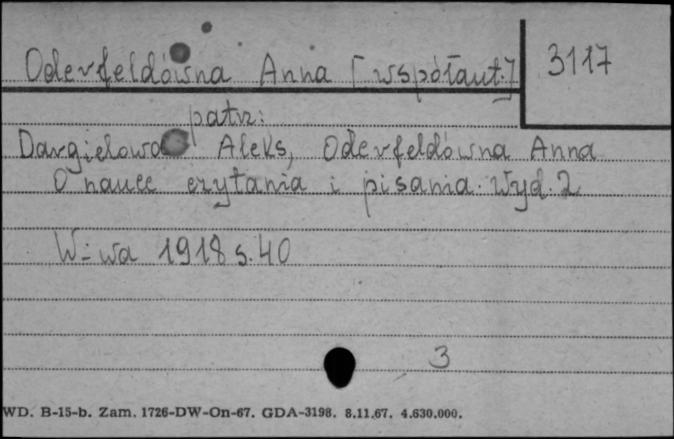 Oderfeldówna Anna [współaut.]
3117
patrz:
Dargielowa Aleks, Oderfeldówna Anna
O nauce czytania i pisania. Wyd. 2
W-wa 1918 s. 40
3
WD. B-15-b. Zam. 1726-DW-On-67. GDA-3198. 8.11.67. 4.630.000.